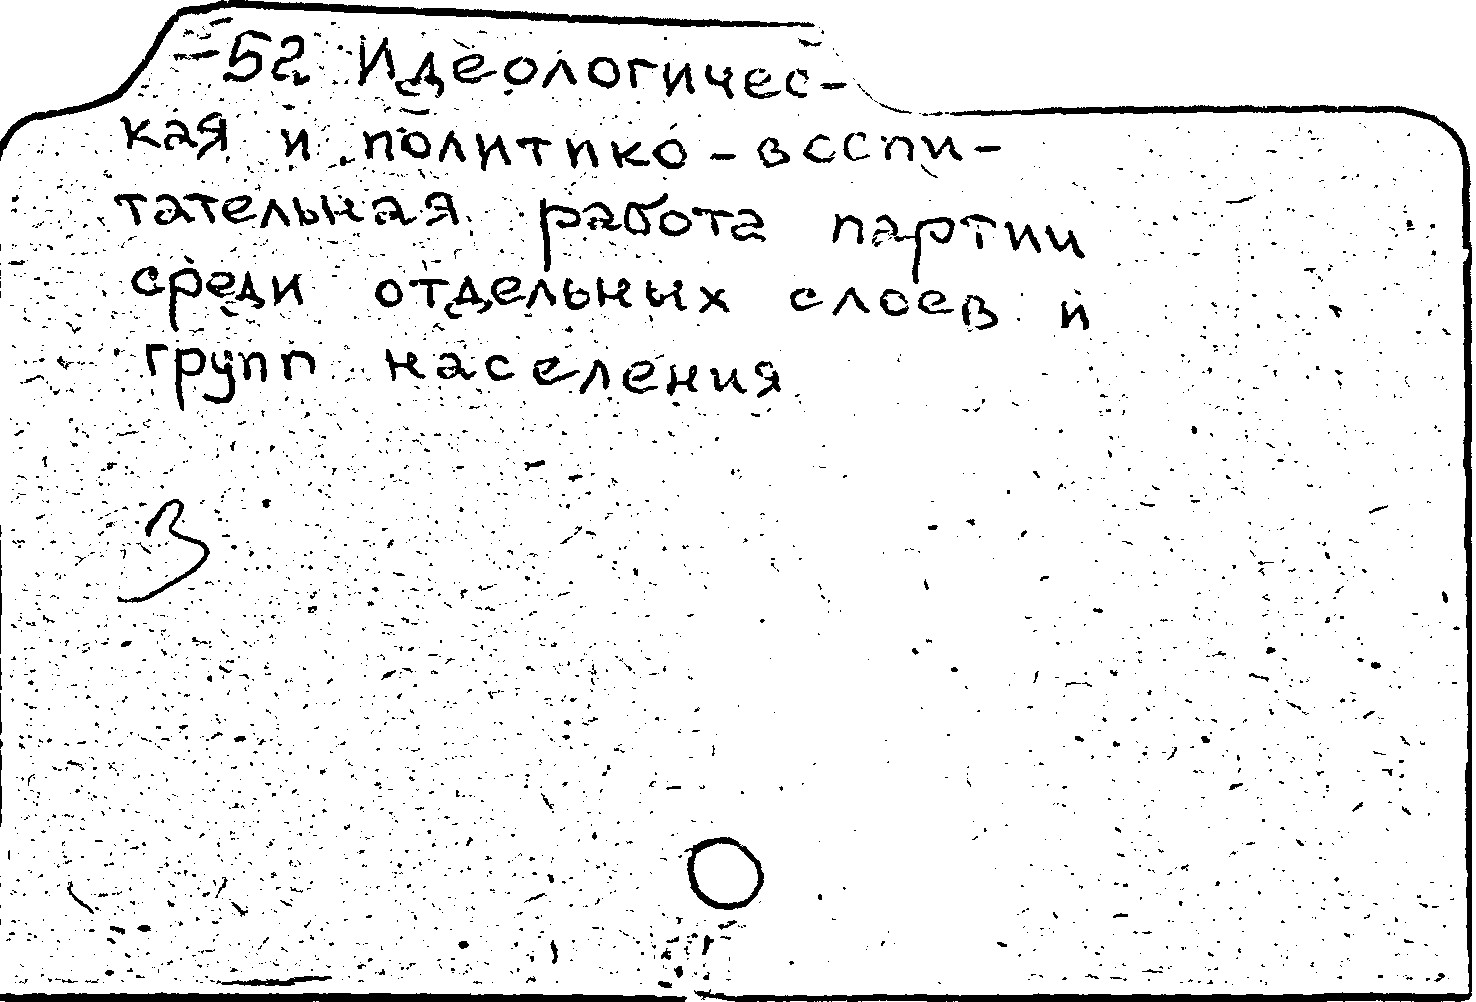 -52 Идеологичес-
кая и политико-воспи-
тательная работа партии
среди отдельных слоев и
групп населения